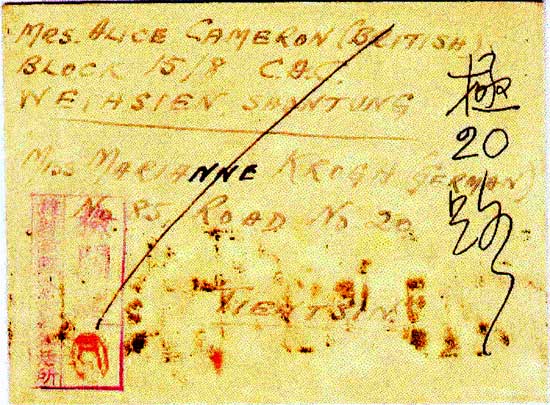 MRS. ALICE CAMERON (BRITISH)
BLOCK 15/8 C.A.C.
WEIHSIEN, SHANTUNG
MISS MARIANNE KROGH GERMAN)
No 85, ROAD No 20
TIENTSIN
極20路